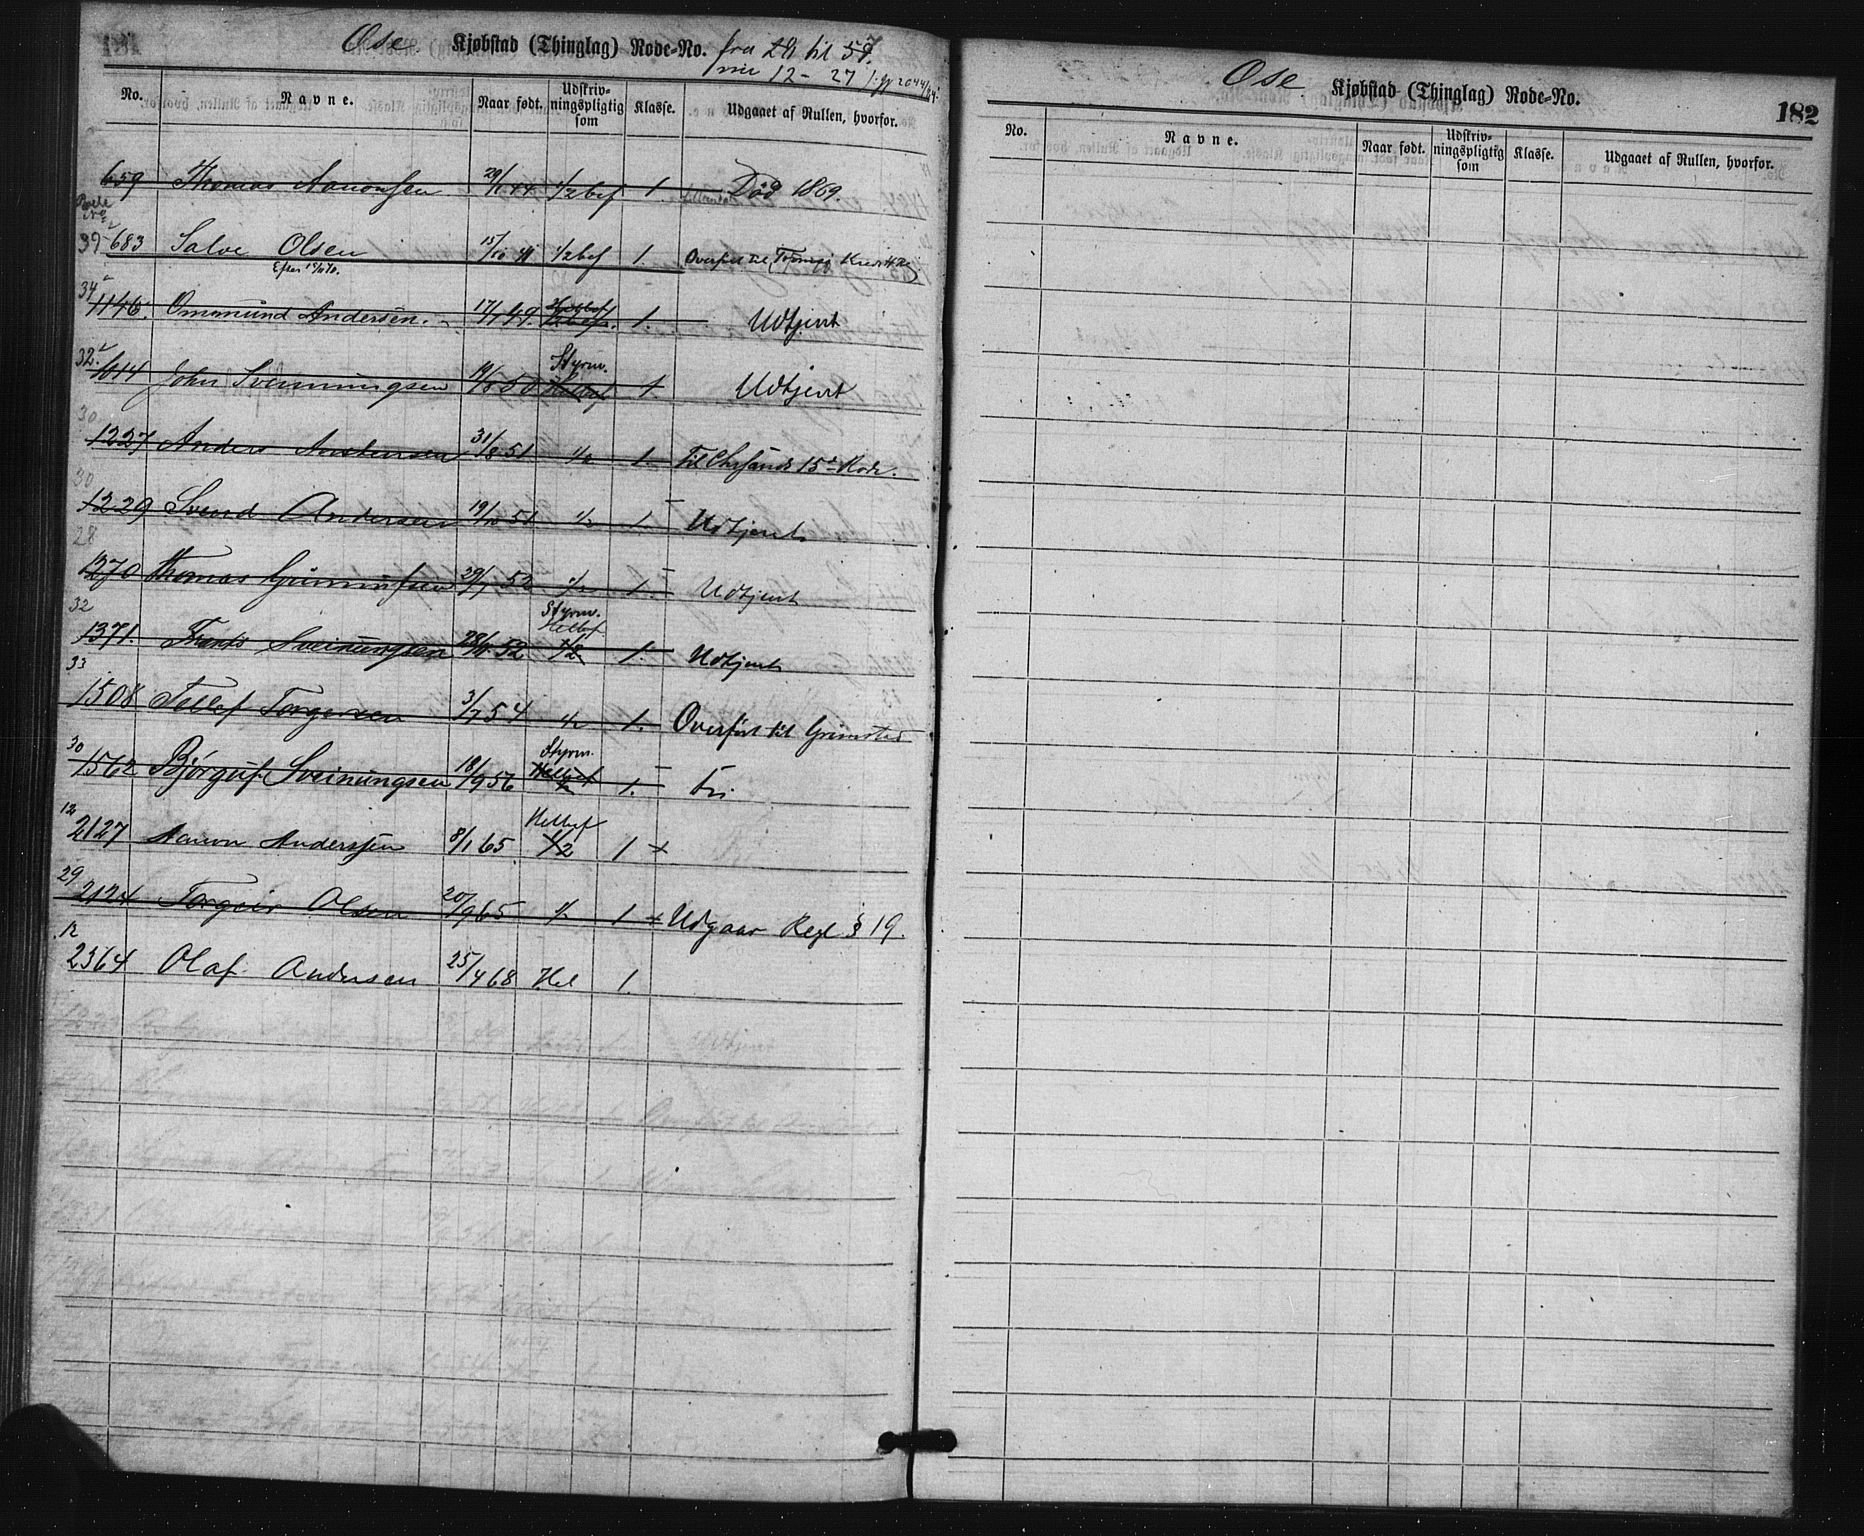 Øse Kjøbstad (Thinglag) Rode-No. fra 28 til 57.
12 - 27
No. Navne. Naar født. Udskriv-ningspligtig som Klasse. Udgaaet af Rullen, hvorfor.
659 Thomas Aanonsen 29/1 44 1/2 bef 1. Død 1869.
Rode No
39 683 Salve Olsen 15/10 41 1/2 bef 1. Overført til
34 1146. Ommund Andersen. 17/7 49. 1. Udtjent
32. 1014 John Sveinungsen 19/8 50 Styrm. Helbef 1. Udtjent
30
1227 Anders Andersen 31/8 51 1/2 1. Til Chrsands 15de Rode.
30
1229 Svend Andersen 19/10 51 1/2 1. Udtjent
28
1270 Thomas Gunnufsen 29/7 52 1/2 1. Udtjent
32
1371. Frants Sveinungsen 28/11 52 Styrm. Helbef 1/2 1. Udtjent
33
1508 Tellef Torgersen 3/7 54 1/2 1. Overført til Grimstad
30
1562 Bjørguf Sveinungsen 18/9 56 Styrm. Helbef 1/2 1. Fri
12
2127 Aanon Anderssen 8/1 65 Helbef 1/2 1 +
29
2124 Torgeir Olsen 20/9 65 1/2 1 + Udgaar Regl § 19.
12
2364 Olaf Andersen 25/4 68 Hel 1.
Øse Kjøbstad (Thinglag) Rode-No.
182
No. Navne. Naar født. Udskriv-ningspligtig som Klasse. Udgaaet af Rullen, hvorfor.